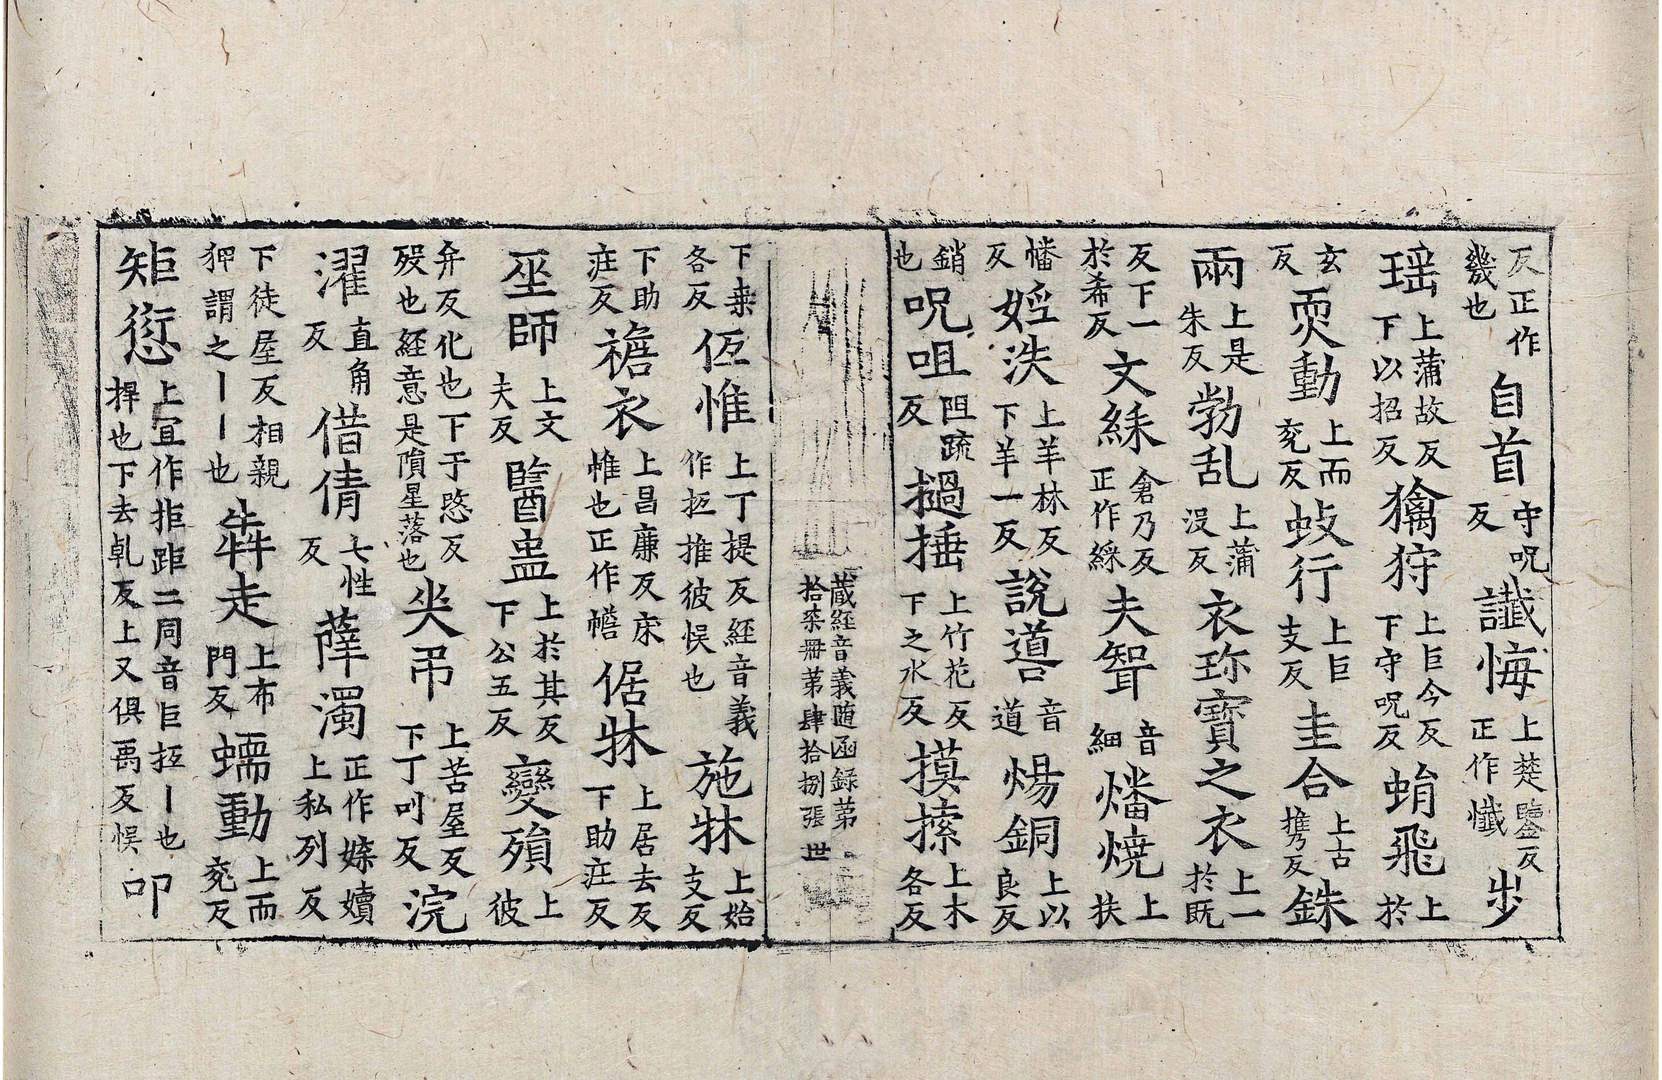 反正作幾也自首守呪反讖悔上楚鑒反正作懺步
瑶上蒲故反下以招反㺀狩上巨今反下守呪反蜎飛上於
玄反耎動上而兖反蚑行上巨支反圭合上古携反銖
兩上是朱反勃乱上蒲没反衣珎寶之衣上一於既
反下一於希反文綵倉乃反正作綵夫聟音細燔燒上扶
幡反婬泆上羊林反下羊一反説噵音道煬銅上以良反
銷也呪咀阻疏反撾捶上竹花反下之水反摸㨞上木各反
藏經音義随函録第拾柒冊第肆拾捌張 世
下桒各反伍惟上丁提反經音義作抵推彼悮也施牀上始支反
下助疘反襜衣上昌廉反床帷也正作幨倨牀上居去反下助疘反
巫師上文夫反醫蛊上於其反下公五反變殞上彼
弁反化也下于愍反殁也經意是隕星落也㘸吊上苦屋反下丁叫反浣
濯直角反借倩七性反薜濁正作媟嬻上私列反
下徒屋反相親狎謂之丨丨也犇走上布門反蠕動上而兖反
矩𠎝上宜作拒距二同音巨抂丨也捍也下去乹反上又俱禹反悮叩